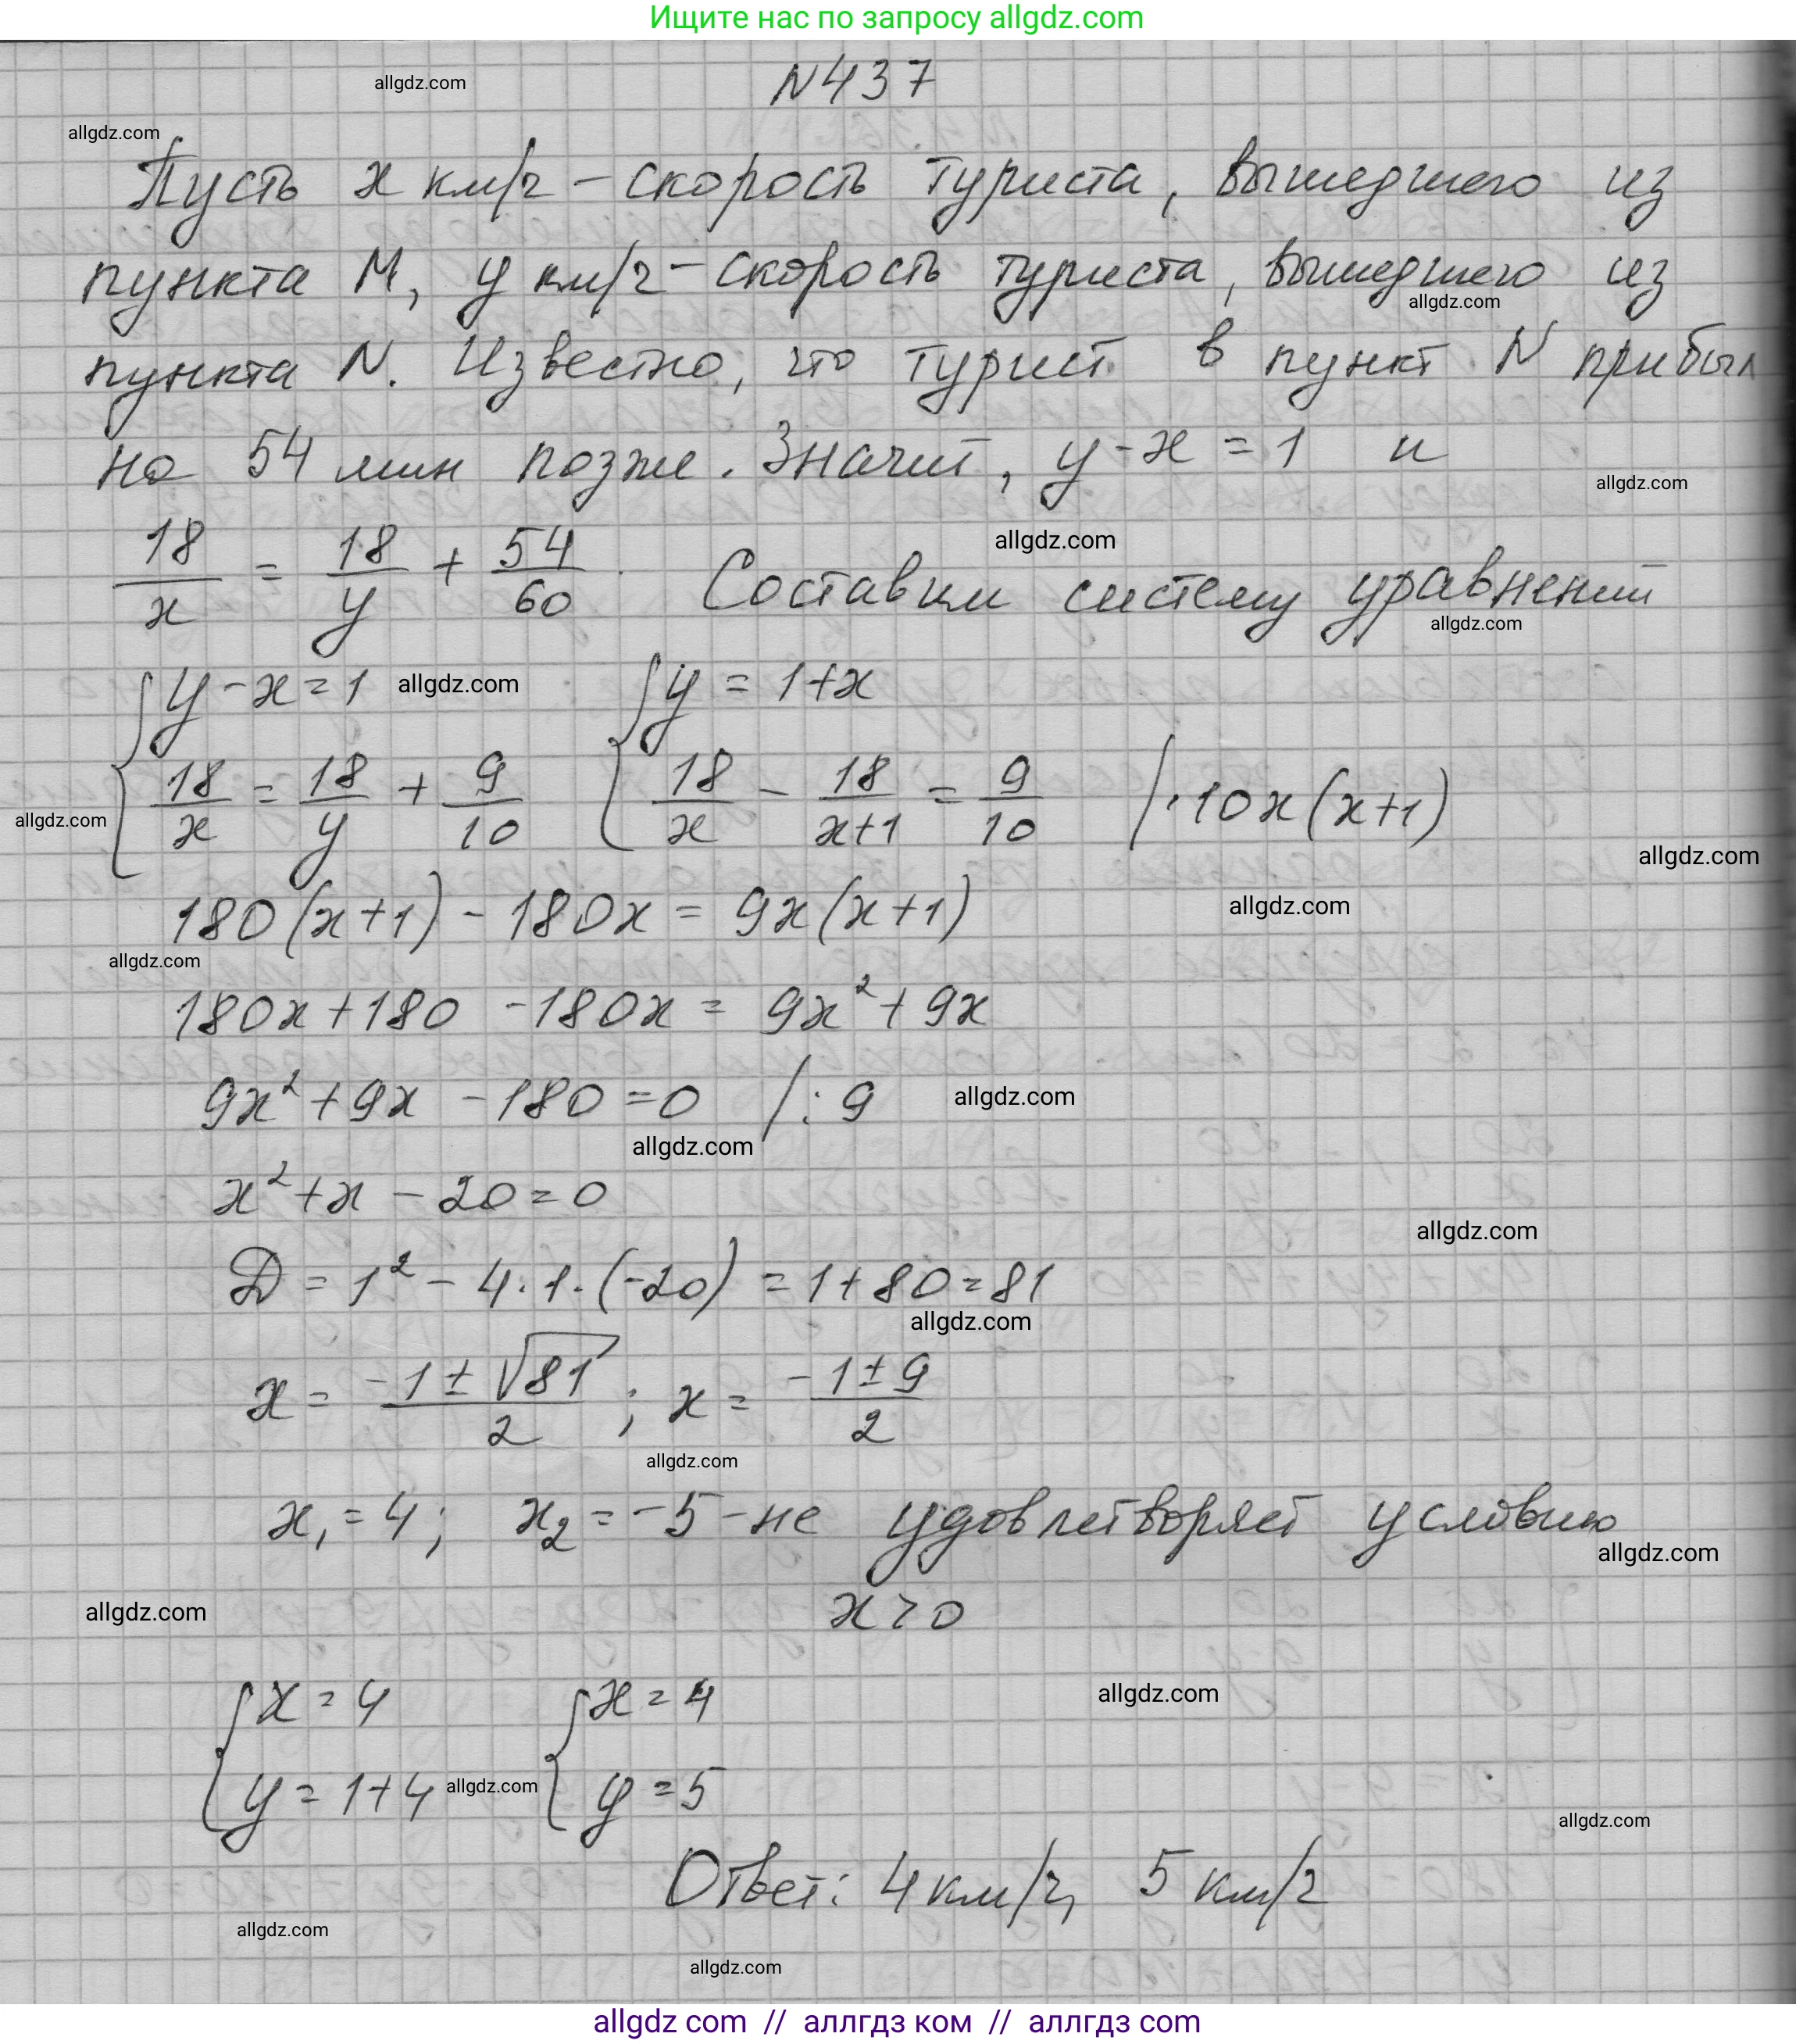 Ищите нас по запросу allgdz.com
N437
allgdz.com
allgdz.com
Пусть x км/ч – скорость туриста, вышедшего из
пункта M, y км/ч – скорость туриста, вышедшего из
allgdz.com
пункта N. Известно, что турист в пункт N прибыл
на 54 мин позже. Значит, y - x = 1 и
allgdz.com
18/x = 18/y + 54/60. Составим систему уравнений
allgdz.com
allgdz.com
{ y - x = 1 allgdz.com { y = 1 + x
{ 18/x = 18/y + 9/10 { 18/x - 18/(x+1) = 9/10 / · 10x(x+1)
allgdz.com
allgdz.com
180(x+1) - 180x = 9x(x+1) allgdz.com
allgdz.com
180x + 180 - 180x = 9x² + 9x
9x² + 9x - 180 = 0 /: 9 allgdz.com
allgdz.com
x² + x - 20 = 0
allgdz.com
D = 1² - 4·1·(-20) = 1 + 80 = 81
allgdz.com
x = (-1 ± √81)/2 ; x = (-1 ± 9)/2
allgdz.com
x₁ = 4; x₂ = -5 - не удовлетворяет условию
allgdz.com
allgdz.com x > 0
{ x = 4 { x = 4 allgdz.com
{ y = 1 + 4 allgdz.com { y = 5
allgdz.com
Ответ: 4 км/ч, 5 км/ч
allgdz.com
allgdz.com
allgdz com // аллгдз ком // аллгдз com